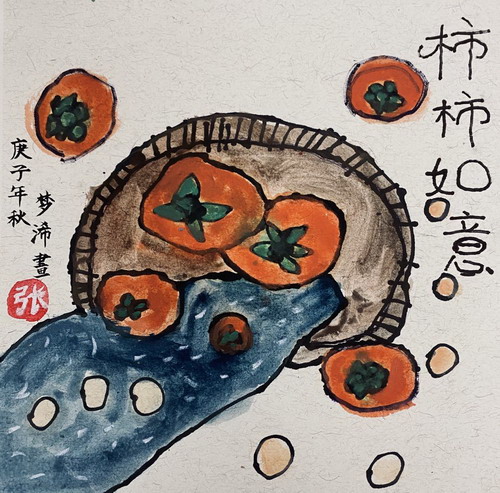 柿柿如意
庚子年秋
梦渧畫
张